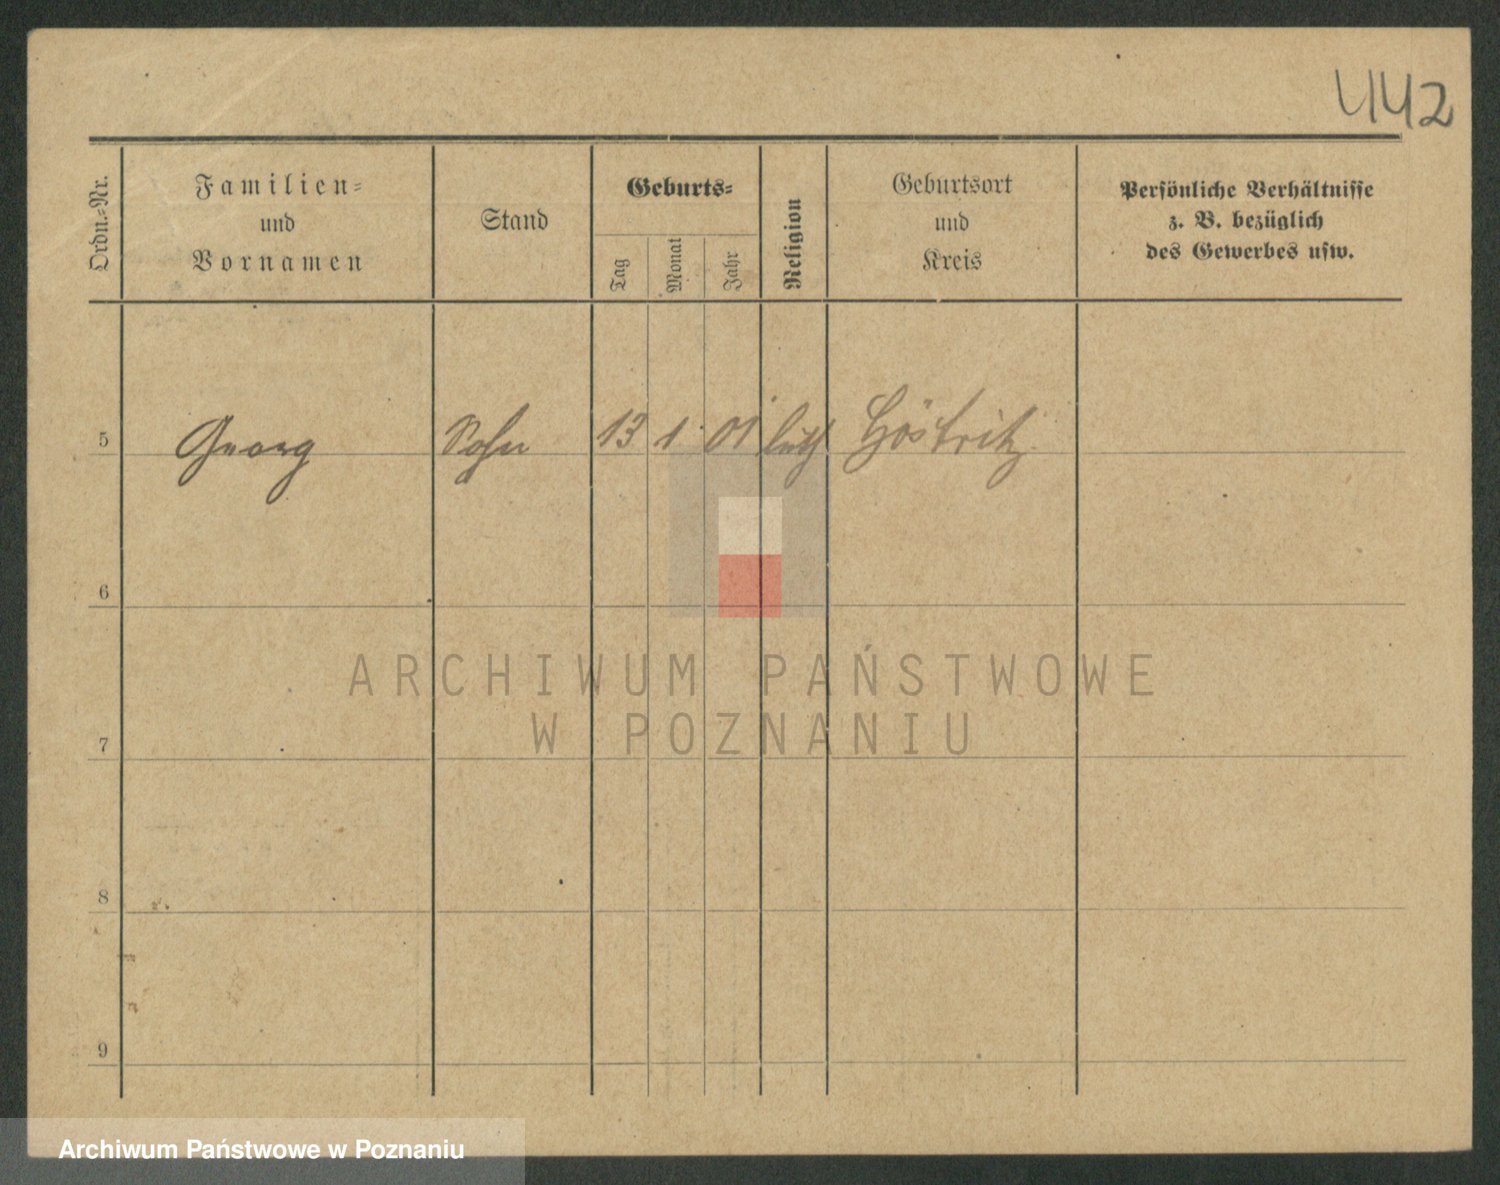 442
Ordn.-Nr.
Familien-
und
Vornamen
Stand
Geburts-
Tag
Monat
Jahr
Religion
Geburtsort
und
Kreis
Persönliche Verhältnisse
z. B. bezüglich
des Gewerbes usw.
5 Georg Sohn 13 1 01 luth
6
7
8
9
ARCHIWUM PAŃSTWOWE
W POZNANIU
Archiwum Państwowe w Poznaniu